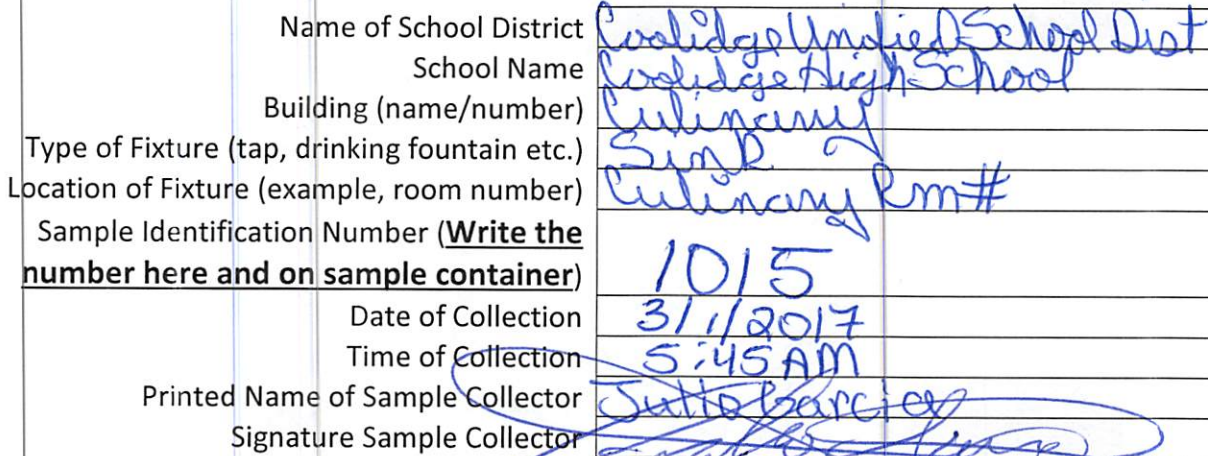 Name of School District Coolidge Unified School Dist
School Name Coolidge High School
Building (name/number) Culinary
Type of Fixture (tap, drinking fountain etc.) Sink
Location of Fixture (example, room number) Culinary Rm#
Sample Identification Number (Write the
number here and on sample container) 1015
Date of Collection 3/1/2017
Time of Collection 5:45 AM
Printed Name of Sample Collector Garcia
Signature Sample Collector